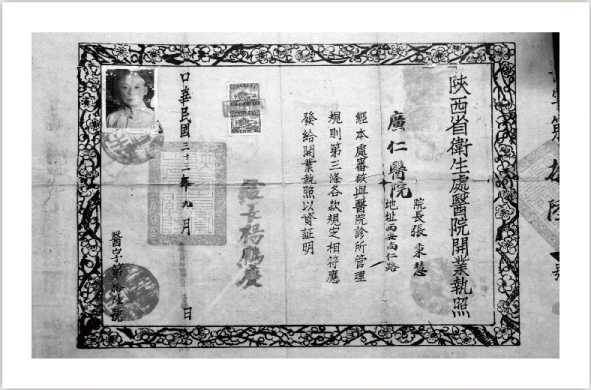 陝西省衛生處醫院開業執照
廣仁醫院
院長張東慧
地址西安尚仁路
經本處審核與醫院診所管理
規則第三條各款規定相符應
發給開業執照以資証明
處長楊鶴慶
華民國三十二年九月 日
醫字第 號